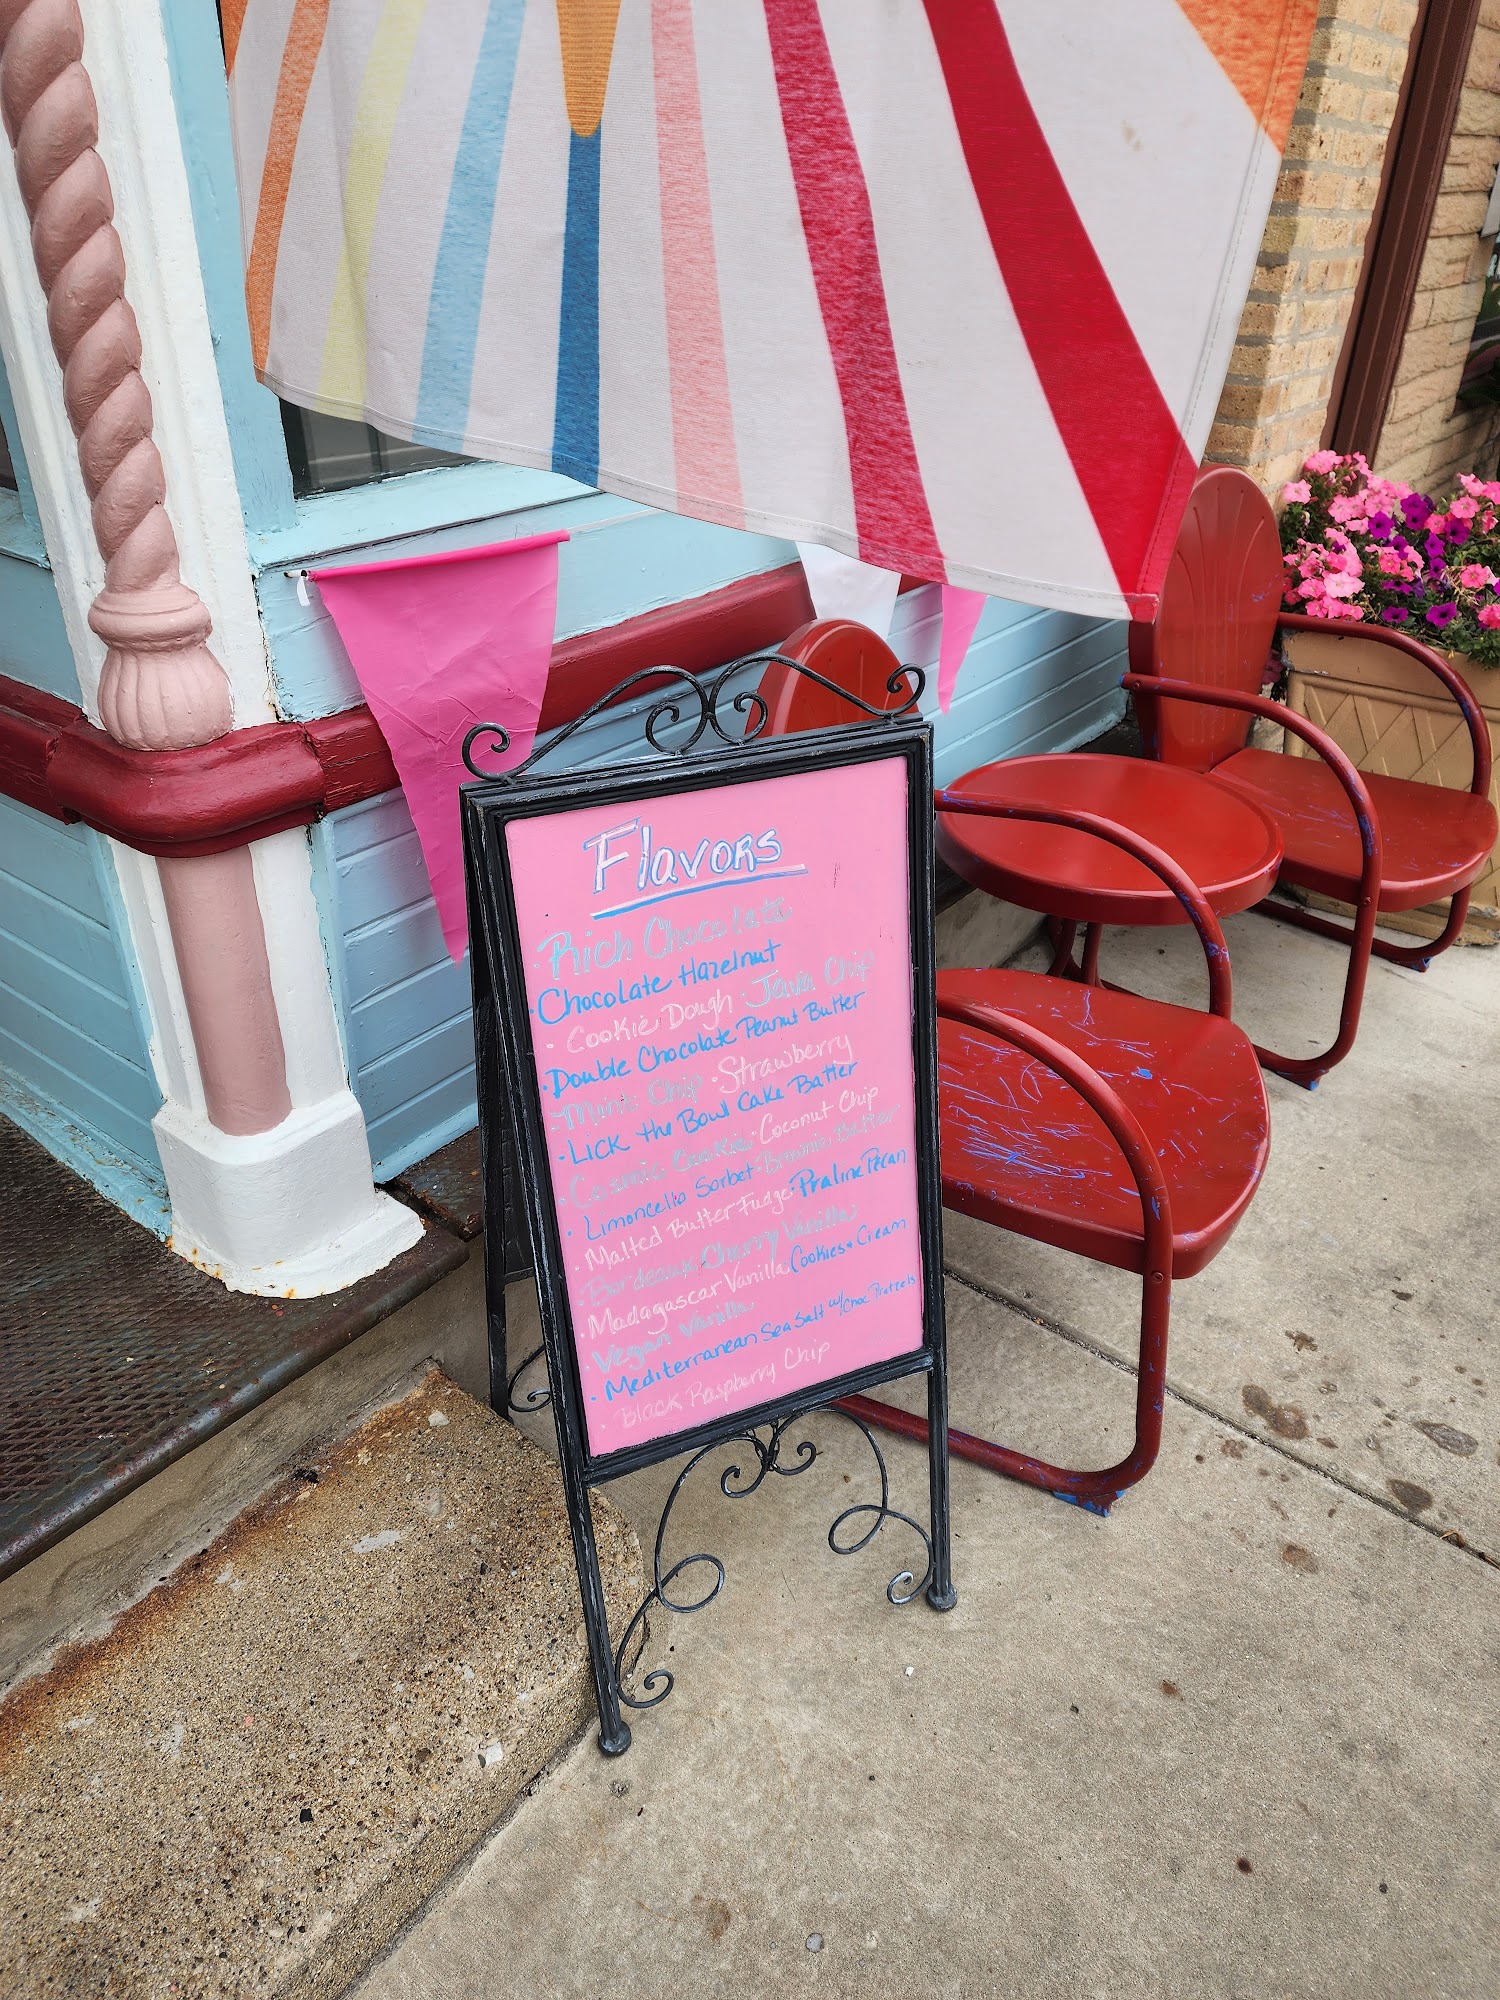 Flavors
· Rich Chocolate
· Chocolate Hazelnut
· Cookie Dough · Java Chip
· Double Chocolate Peanut Butter
· Mint Chip · Strawberry
· Lick the Bowl Cake Batter
· Cosmic Cookie · Coconut Chip
· Limoncello Sorbet · Brownie Batter
· Malted Butter Fudge · Praline Pecan
· Bordeaux Cherry Vanilla
· Madagascar Vanilla · Cookies + Cream
· Vegan Vanilla
· Mediterranean Sea Salt w/ Choc Pretzels
· Black Raspberry Chip